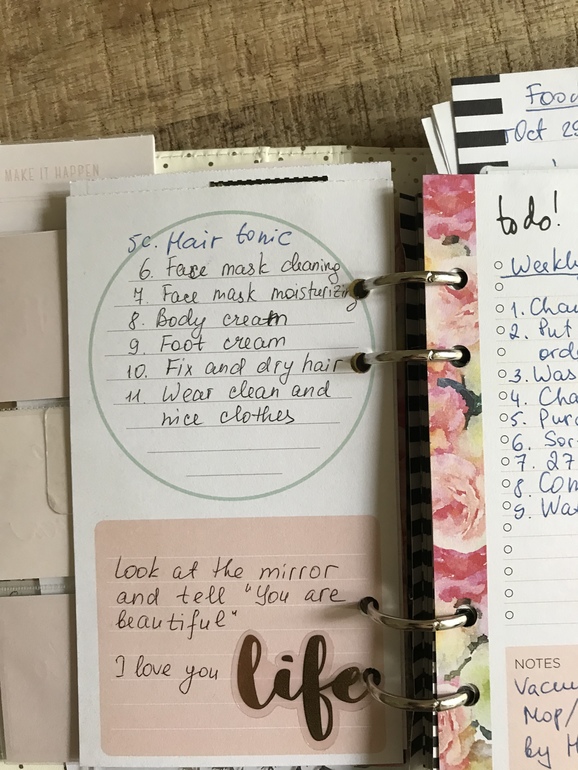 MAKE IT HAPPEN
5c. Hair tonic
6. Face mask cleaning
7. Face mask moisturizing
8. Body cream
9. Foot cream
10. Fix and dry hair
11. Wear clean and
nice clothes
Look at the mirror
and tell "You are
beautiful"
I love you
life
Oct
to do!
1.
2. Put
3.
4.
5.
6.
7. 27
8.
9.
NOTES
Mop/
by